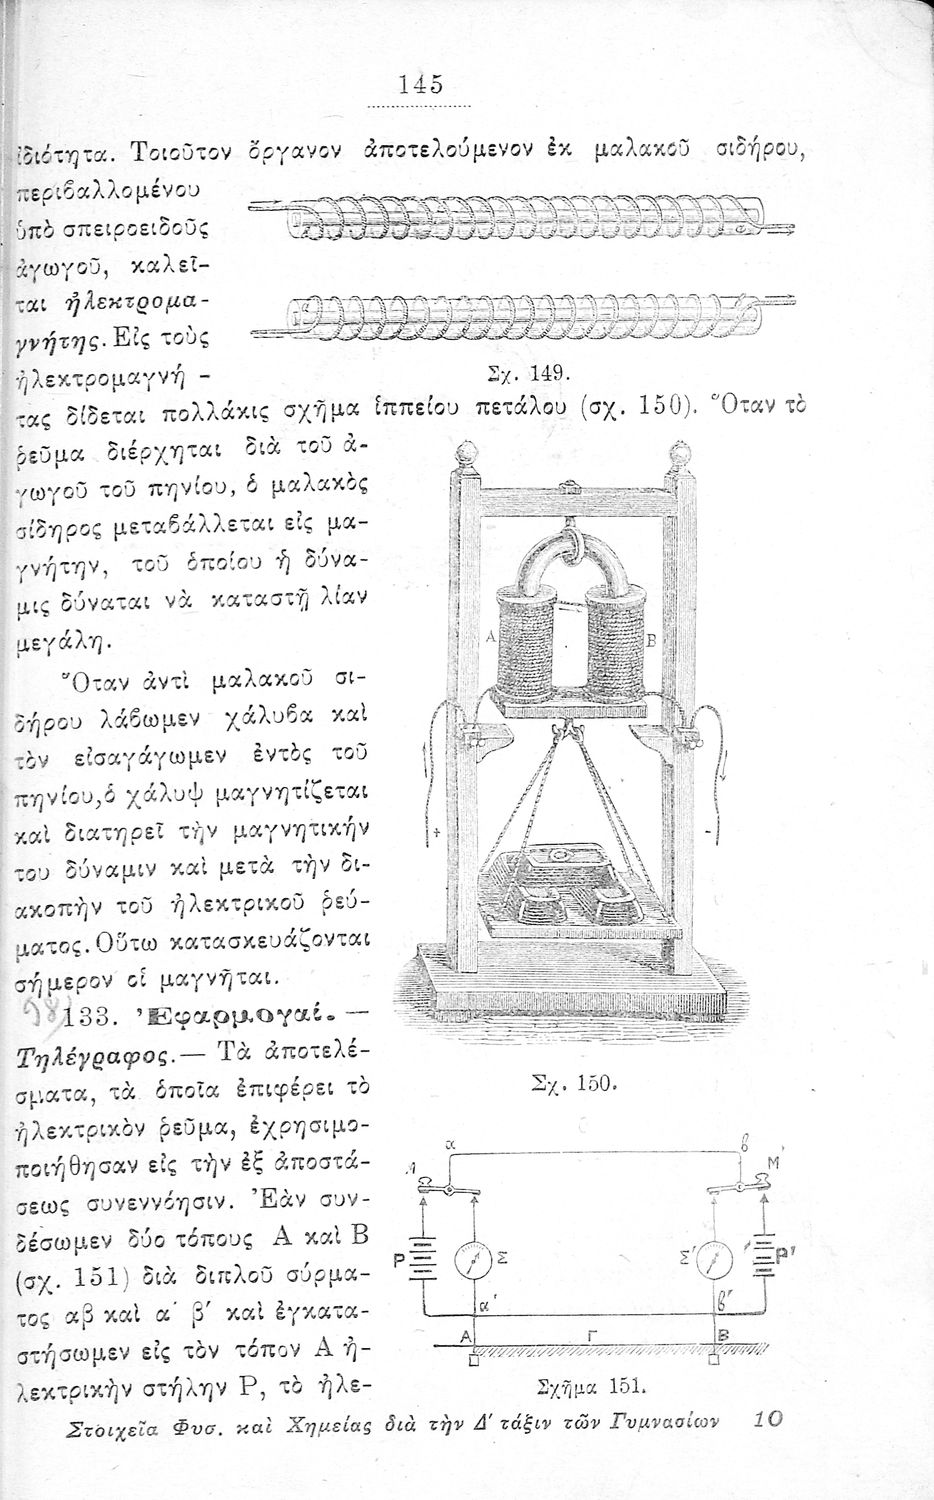 145
ἰδιότητα. Τοιοῦτον ὄργανον ἀποτελούμενον ἐκ μαλακοῦ σιδήρου,
περιβαλλομένου
ὑπὸ σπειροειδοῦς
ἀγωγοῦ, καλεῖ-
ται ἠλεκτρομα-
γνήτης. Εἰς τοὺς
ἠλεκτρομαγνή -
Σχ. 149.
τας δίδεται πολλάκις σχῆμα ἱππείου πετάλου (σχ. 150). Ὅταν τὸ
ῥεῦμα διέρχηται διὰ τοῦ ἀ-
γωγοῦ τοῦ πηνίου, ὁ μαλακὸς
σίδηρος μεταβάλλεται εἰς μα-
γνήτην, τοῦ ὁποίου ἡ δύνα-
μις δύναται νὰ καταστῇ λίαν
μεγάλη.
Ὅταν ἀντὶ μαλακοῦ σι-
δήρου λάβωμεν χάλυβα καὶ
τὸν εἰσαγάγωμεν ἐντὸς τοῦ
πηνίου, ὁ χάλυψ μαγνητίζεται
καὶ διατηρεῖ τὴν μαγνητικήν
του δύναμιν καὶ μετὰ τὴν δι-
ακοπὴν τοῦ ἠλεκτρικοῦ ῥεύ-
ματος. Οὕτω κατασκευάζονται
σήμερον οἱ μαγνῆται.
A B
+ -
Σχ. 150.
133. Ἐφαρμογαί. —
Τηλέγραφος.— Τὰ ἀποτελέ-
σματα, τὰ ὁποῖα ἐπιφέρει τὸ
ἠλεκτρικὸν ῥεῦμα, ἐχρησιμο-
ποιήθησαν εἰς τὴν ἐξ ἀποστά-
σεως συνεννόησιν. Ἐὰν συν-
δέσωμεν δύο τόπους Α καὶ Β
(σχ. 151) διὰ διπλοῦ σύρμα-
τος αβ καὶ α΄ β΄ καὶ ἐγκατα-
στήσωμεν εἰς τὸν τόπον Α ἠ-
λεκτρικὴν στήλην Ρ, τὸ ἠλε-
α β
Μ΄
Ρ Σ Σ΄ Ρ΄
α΄ β΄
Α Γ Β
Σχῆμα 151.
Στοιχεῖα Φυσ. καὶ Χημείας διὰ τὴν Δ΄ τάξιν τῶν Γυμνασίων 10